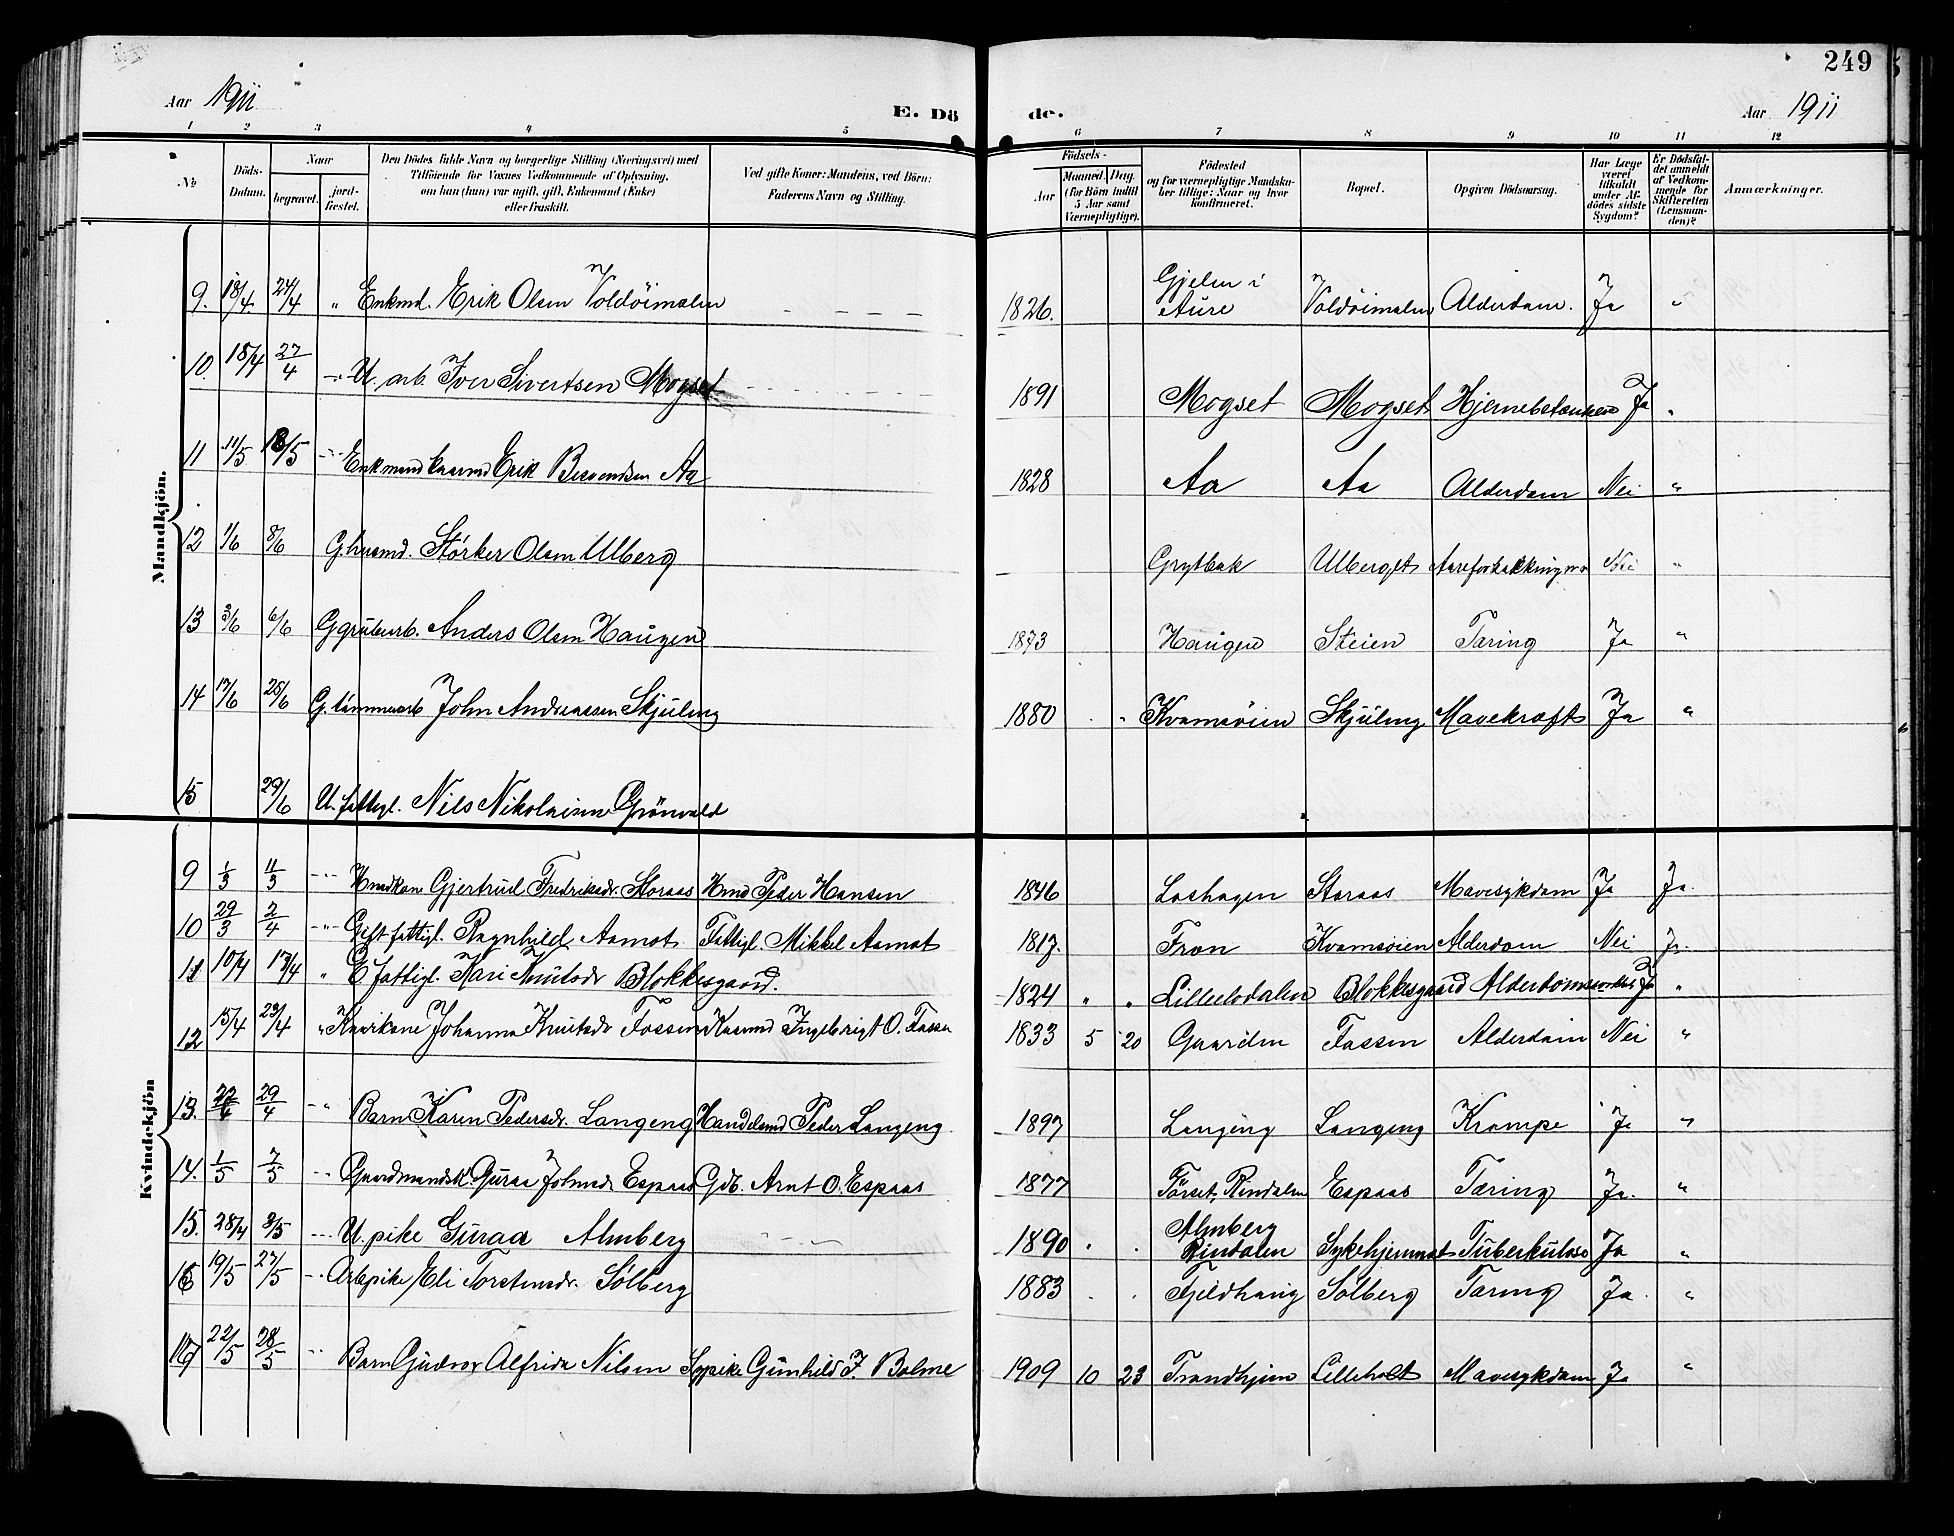 249
Aar 1911
E. Dö
de.
Aar 1911
1 2 3 4 5 6 7 8 9 10 11 12
No
Döds-Datum.
Naar
begravet.
jord-fæstet.
Den Dödes fulde Navn og borgerlige Stilling (Næringsvei) med
Tilföiende for Voxnes Vedkommende af Oplysning,
om han (hun) var ugift, gift, Enkemand (Enke)
eller fraskilt.
Ved gifte Koner: Mandens, ved Börn:
Faderens Navn og Stilling.
Födsels-
Aar
Maaned. Dag.
(for Börn indtil
5 Aar samt
Værnepligtige).
Födested
og for værnepligtige Mandska-
ber tillige: Naar og hvor
konfirmeret.
Bopæl.
Opgiven Dödsaarsag.
Har Læge
været
tilkaldt
under Af-
dödes sidste
Sygdom?
Er Dödsfal-
det anmeldt
af Vedkom-
mende for
Skifteretten
(Lensman-
den)?
Anmærkninger.
Mandkjön.
9. 18/4. 24/4 " Enkmd. Erik Olsen Voldöimalen - - - - 1826. Gjelen i Aure Voldöimalen Alderdam. Ja "
10. 18/4 27/4 - U. arb. Iver Sivertsen Mogset - - - - 1891 Mogset Mogset Hjernebetændelse Ja "
11 11/5 18/5 - Enkmand kaarmd Erik Berendsen Aa 1828 Aa Aa Alderdam Nei "
12 1/6 8/6 G. husmd. Störker Olsen Ulberg - Grytbak Ulbergets Aareforkalkning Nei "
13 3/6 6/6 G grubearb. Anders Olsen Haugen 1873 Haugen Steien Tæring Ja "
14 17/6 25/6 G. tömmerarb John Andreassen Skjuling 1880 . " Kvamsöien Skjuling Mavekræft Ja "
15 29/6 U. fattigl. Nils Nikolaisen Grönvold
Kvindekjön
9 1/3 11/3 - Husmdkone Gjertrud Fredriksdr. Storaas Hmd Peder Hansen 1846 Loshagen Storaas Mavesykdam Ja Ja.
10 29/3 2/4 - Gift fattigl. Ragnhild Aamot Fattigl. Mikkel Aamot 1817. Fron Kvamsöien Alderdom Nei Ja.
11 10/4 17/4 " E fattigl. Kari Knutsdr Blokkesgaard. 1824 " " Lillelodalen Blokkesgaard Ja "
12 15/4 23/4 " Johanna Knutsdr Fossen Kaarmd Ingebrigt O. Fossen 1833 5 20 Gaarden Fossen Alderdam Nei "
13. 22/4 29/4 - Barn Karen Pedersdr. Langeng Handelsmd Peder Langeng 1897 Langeng Langeng Krampe Ja "
14. 1/5 7/5 - Gaardmandsk. Guraa Johnsdr Espaas Gdb. Arnt O. Espaas 1877 Förset, Rindalen Espaas Tæring Ja. "
15. 28/4 3/5 - U. pike Guraa Almberg - - 1890 . . Almberg Rindalen Sykehjemmet Tuberkulose Ja "
16 19/5 27/5 - Arb.pike Eli Torstensdr. Sölberg 1883 . . Fjeldhaug Sölberg Tæring Ja "
17 22/5 28/5 - Barn Gudrov Alfrida Nilsen Sypike Gunhild J. Bolme 1909 10 23 Trondhjem Lilleholt Mavesykdam Ja "